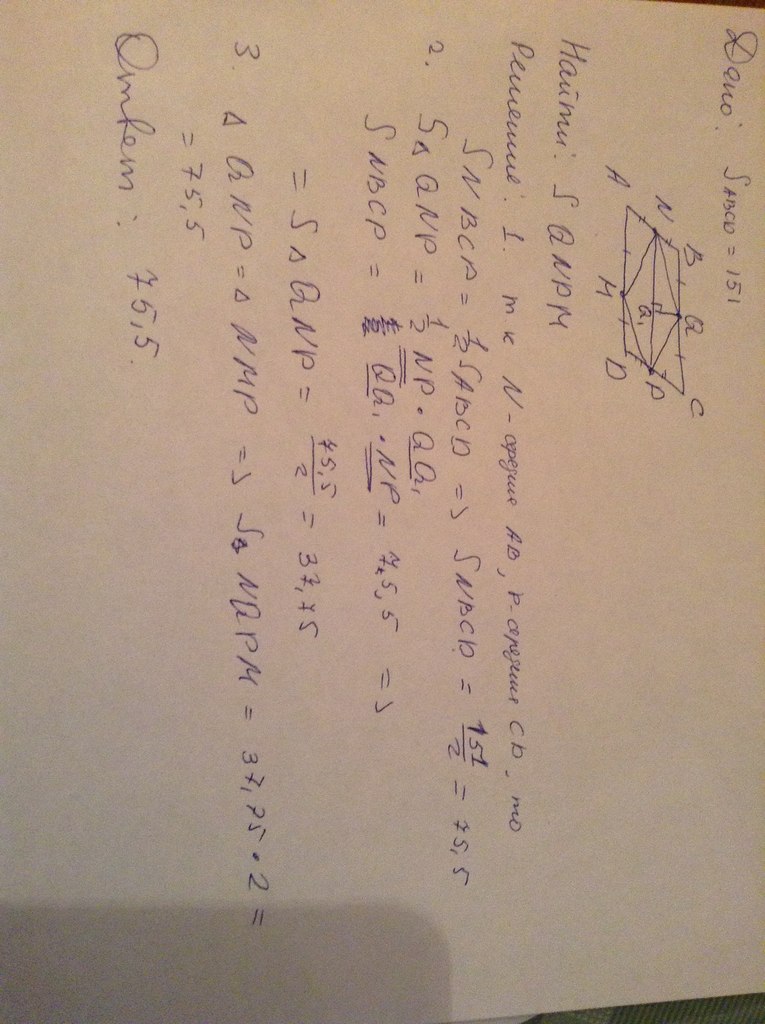 Дано: SABCD = 151
B Q C
N Q₁ P
A M D
Найти: S QNPM
Решение: 1. т к N - средине AB, P - средине CD, то
S NBCP = ½ SABCD => S NBCD = 151/2 = 75,5
2. S△ QNP = ½ NP · QQ₁
S NBCP = QQ₁ · NP = 75,5 =>
= S△ QNP = 75,5/2 = 37,75
3. △ QNP = △ NMP => S NQPM = 37,75 · 2 =
= 75,5
Ответ: 75,5.